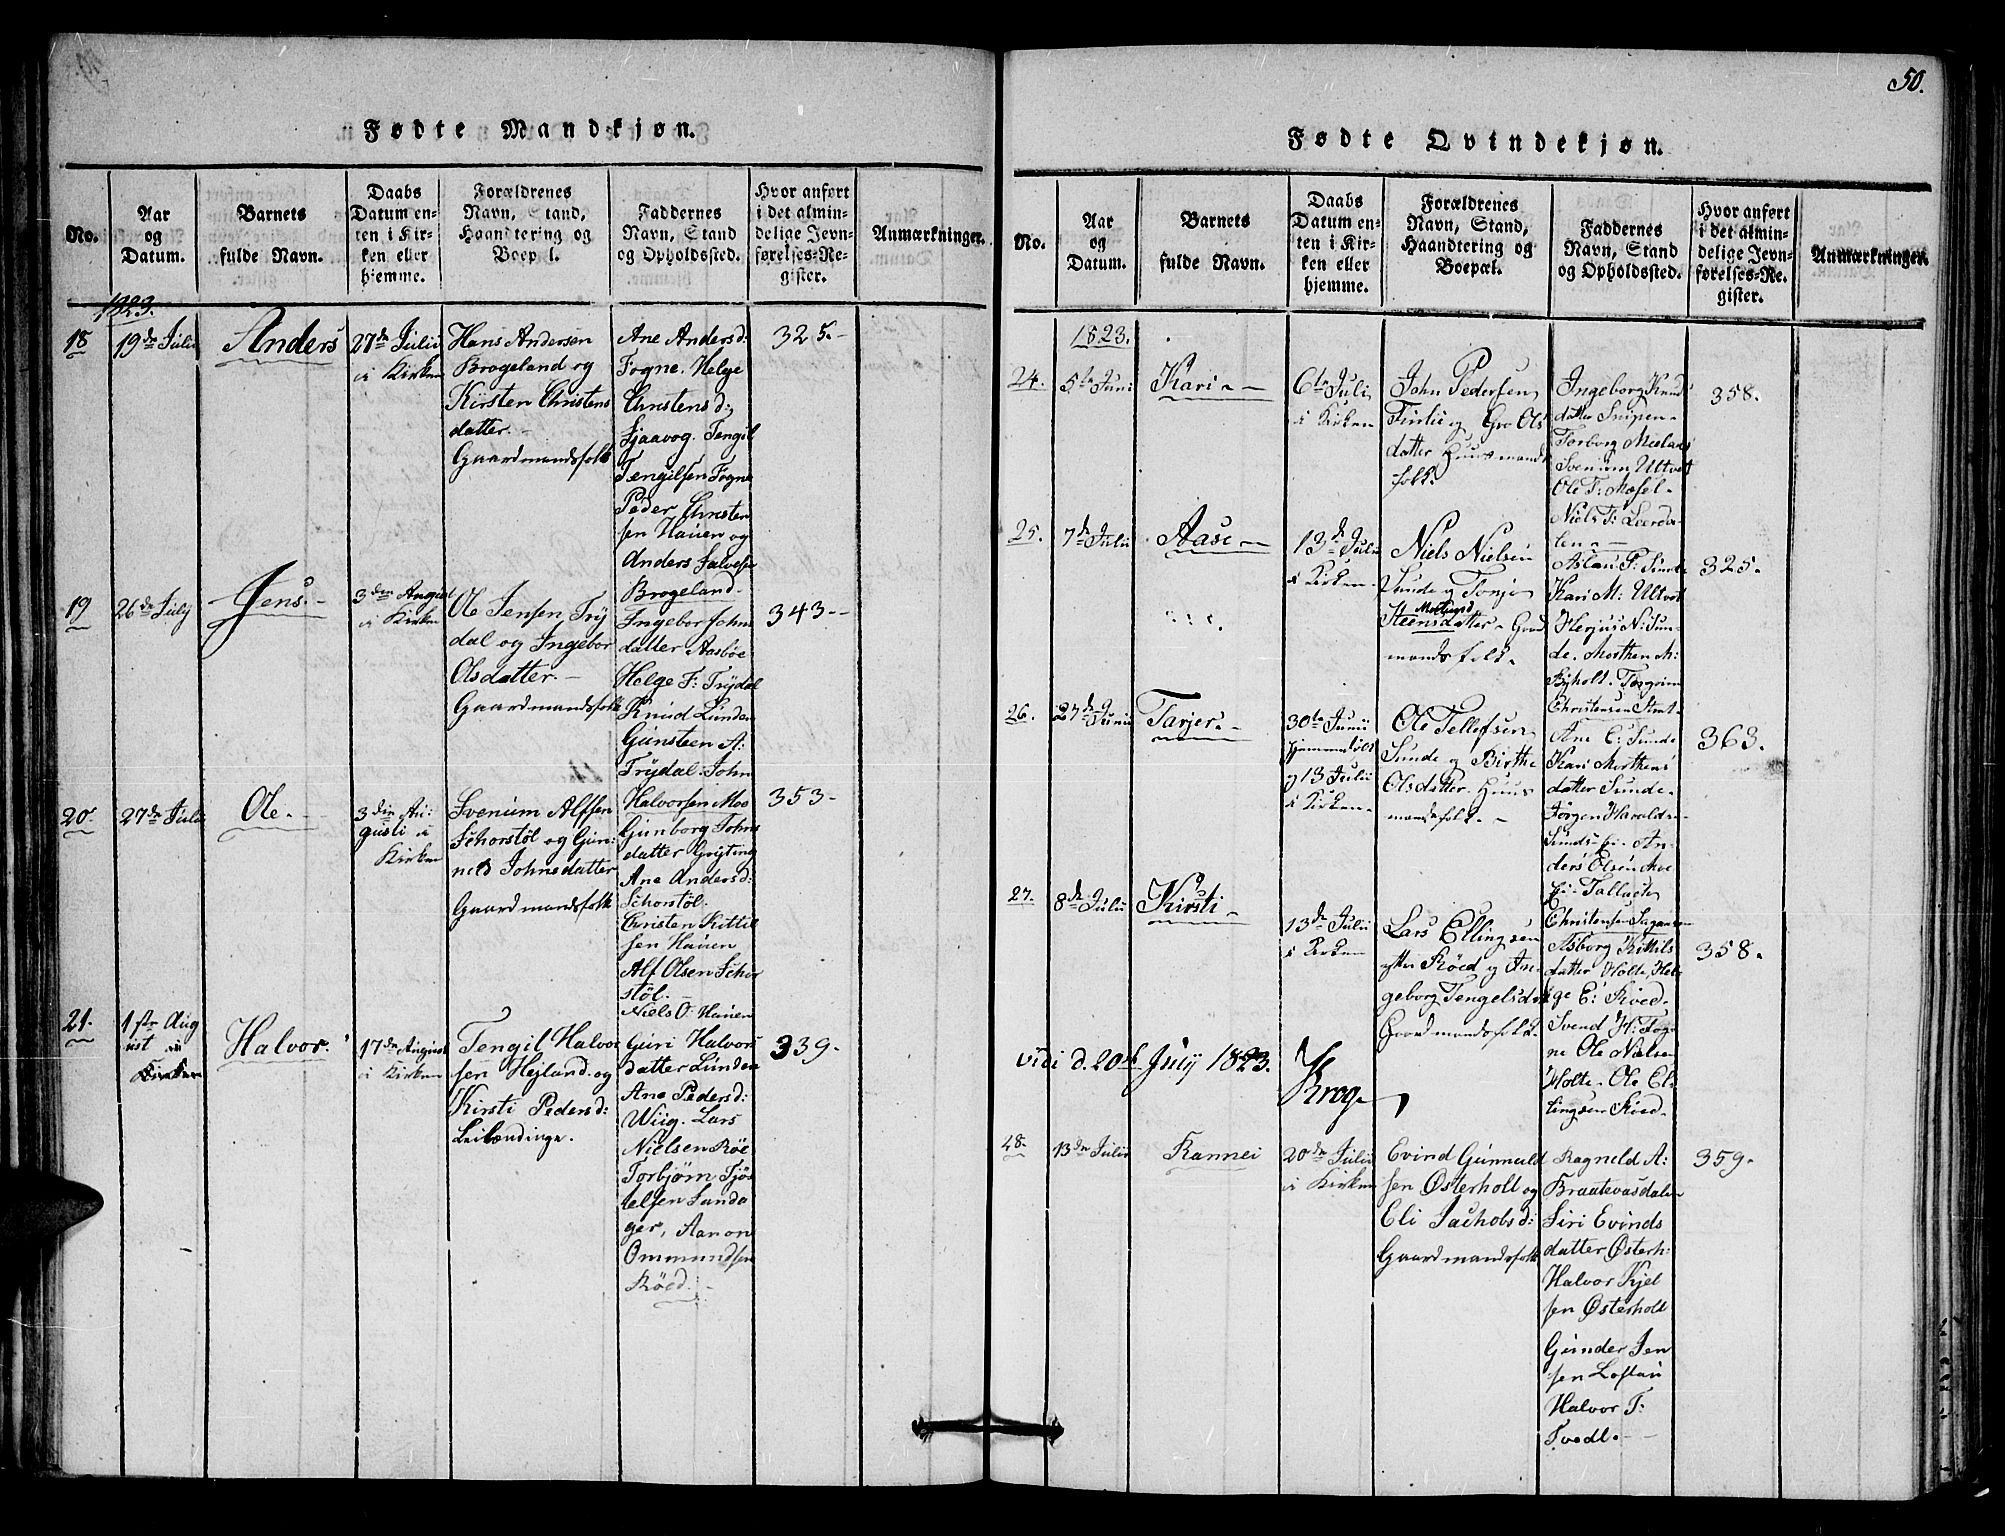 50.
Fødte Mandkjøn.
No.
Aar
og
Datum.
Barnets
fulde Navn.
Daabs
Datum en-
ten i Kir-
ken eller
hjemme.
Forældrenes
Navn, Stand,
Haandtering og
Boepæl.
Faddernes
Navn, Stand
og Opholdssted.
Hvor anført
i det almin-
delige Jevn-
førelses-Re-
gister.
Anmærkninger.
1823.
18
19de Julii
Anders
27de Julii
i Kirken
Hans Andersen
Brogeland og
Kirsten Christens
datter.-
Gaardmandsfolk
Ane Andersd:
Fogne. Helge
Christensd:
Sjaavog. Tengil
Tengilsen Fogne
Peder Christen
sen Hauen og
Anders Salvesen
Brogeland-
325.-
19
26de July
Jens-
3den August
i Kirken
Ole Jensen Try
dal og Ingebor
Olsdatter.-
Gaardmandsfolk
Ingebor John
datter Aasbøe
Helge F: Trydal
Knud Lunden
Gunsteen A:
Trydal. John
Halvorsen Moe
343--
20.
27de Julii
Ole.-
3den Au-
gusti i
Kirken
Svenum Alfsen
Schorstøl og Gun-
neld Johnsdatter
Gaardmandsfolk
Gunborg Johns
datter Gryting
Ane Andersd:
Schorstøl.
Christen Kittil
sen Hauen
Alf Olsen Schor
støl.-
Niels O. Hauen
353-
21.
1ste Aug
ust i
Kirken
Halvor.
17de August
i Kirken
Tengil Halvor
sen Hejland og
Kirsti Pedersd:
Leilændinge.
Guri Halvors
datter Lunden
Ane Pedersd:
Wiig. Lars
Nielsen Røe
Torbjørn Tjøs
telsen Sunda
ger, Aanon
Ommundsen
Røed.-
339-
Fødte Qvindekjøn.
No.
Aar
og
Datum.
Barnets
fulde Navn.
Daabs
Datum en-
ten i Kir-
ken eller
hjemme.
Forældrenes
Navn, Stand,
Haandtering og
Boepæl.
Faddernes
Navn, Stand
og Opholdssted.
Hvor anført
i det almin-
delige Jevn-
førelses-Re-
gister.
Anmærkninger.
1823.
24.
5te Juni
Kari--
6te Juli
i Kirken
John Pedersen
og Gro Ols
datter Huusmands
folk.
Ingeborg Knud
datter Snipen-
Torborg
Svenum Ultvet
Ole T: Mosel-
Niels T:
358.
25.
7de Julii
Aase-
13de Julii
i Kirken-
Niels Nielsen
Sunde og Tonje
Steensdatter- Gaard
mandsfolk.
Aslau P: Sunde
Kari M: Ultvet
Herjus N: Sun-
de. Morthen M:
Byholt. Torgrim
Christensen
325.
26.
27de Junii
Tarjer.-
30te Junii
hjemmedøbt
og 13 Julii
i Kirken-
Ole Tellefsen
Sunde og Birthe
Olsdatter. Huus
mandsfolk.-
Ane C: Sunde
Kari Morthens
datter Sunde-
Jørgen Harolds-
An-
ders Olsen Moe
Christensen
363.
27.
8de Julii
Kirsti-
13de Julii
i Kirken
Lars Ellingsen
ytter Røed og In-
geborg Tengelsd:
Gaardmandsfolk.
Asborg Kittils
datter Holte, Hel-
ge E: Røed-
Svend H: Fog-
ne Ole Nielsen
Holte- Ole El-
lingsen Røed-
358.
vidi d. 20de July 1823.
Krog
48.
13de Julii
Rannei
20de Julii
i Kirken
Evind Gunnuld
sen Østerholt og
Eli Jachobsd:
Gaardmandsfolk
Ragneld A:
Braatevasdalen
Siri Evinds
datter Østerh:
Halvor Kjel
sen Østerholt
Gunder Jen
sen Loftau
Halvor T:
Tvedt.-
359-